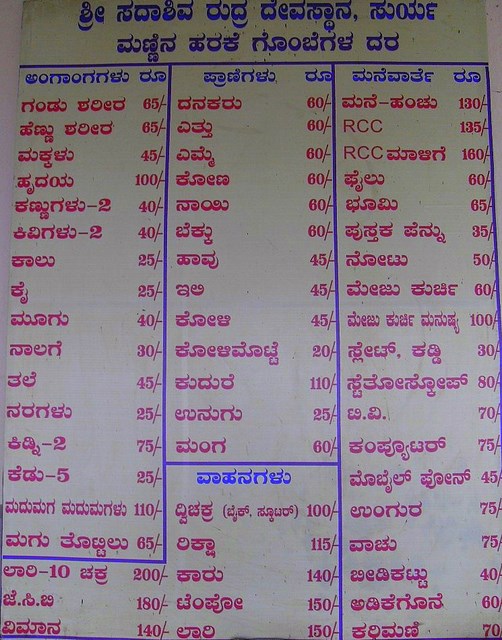 ಶ್ರೀ ಸದಾಶಿವ ರುದ್ರ ದೇವಸ್ಥಾನ, ಸುರ್ಯ
ಮಣ್ಣಿನ ಹರಕೆ ಗೊಂಬೆಗಳ ದರ
ಅಂಗಾಂಗಗಳು ರೂ
ಗಂಡು ಶರೀರ 65/-
ಹೆಣ್ಣು ಶರೀರ 65/-
ಮಕ್ಕಳು 45/-
ಹೃದಯ 100/-
ಕಣ್ಣುಗಳು-2 40/-
ಕಿವಿಗಳು-2 40/-
ಕಾಲು 25/-
ಕೈ 25/-
ಮೂಗು 40/-
ನಾಲಗೆ 30/-
ತಲೆ 45/-
ನರಗಳು 25/-
ಕಿಡ್ನಿ-2 75/-
ಕೆಡು-5 25/-
ಮದುಮಗ ಮದುಮಗಳು 110/-
ಮಗು ತೊಟ್ಟಿಲು 65/-
ಲಾರಿ-10 ಚಕ್ರ 200/-
ಜೆ.ಸಿ.ಬಿ 180/-
ವಿಮಾನ 140/-
ಪ್ರಾಣಿಗಳು ರೂ
ದನಕರು 60/-
ಎತ್ತು 60/-
ಎಮ್ಮೆ 60/-
ಕೋಣ 60/-
ನಾಯಿ 60/-
ಬೆಕ್ಕು 60/-
ಹಾವು 45/-
ಇಲಿ 45/-
ಕೋಳಿ 45/-
ಕೋಳಿಮೊಟ್ಟೆ 20/-
ಕುದುರೆ 110/-
ಉನುಗು 25/-
ಮಂಗ 60/-
ವಾಹನಗಳು
ದ್ವಿಚಕ್ರ (ಬೈಕ್, ಸ್ಕೂಟರ್) 100/-
ರಿಕ್ಷಾ 115/-
ಕಾರು 140/-
ಟೆಂಪೋ 150/-
ಲಾರಿ 150/-
ಮನೆವಾರ್ತೆ ರೂ
ಮನೆ-ಹಂಚು 130/-
RCC 135/-
RCC ಮಾಳಿಗೆ 160/-
ಫೈಲು 60/-
ಭೂಮಿ 65/-
ಪುಸ್ತಕ ಪೆನ್ನು 35/-
ನೋಟು 50/-
ಮೇಜು ಕುರ್ಚಿ 60/-
ಮೇಜು ಕುರ್ಚಿ ಮನುಷ್ಯ 100/-
ಸ್ಲೇಟ್, ಕಡ್ಡಿ 30/-
ಸ್ಟೆತೋಸ್ಕೋಪ್ 80/-
ಟಿ.ವಿ. 70/-
ಕಂಪ್ಯೂಟರ್ 75/-
ಮೊಬೈಲ್ ಫೋನ್ 45/-
ಉಂಗುರ 75/-
ವಾಚು 75/-
ಬೀಡಿಕಟ್ಟು 40/-
ಅಡಿಕೆಗೊನೆ 60/-
ಕರಿಮಣಿ 70/-